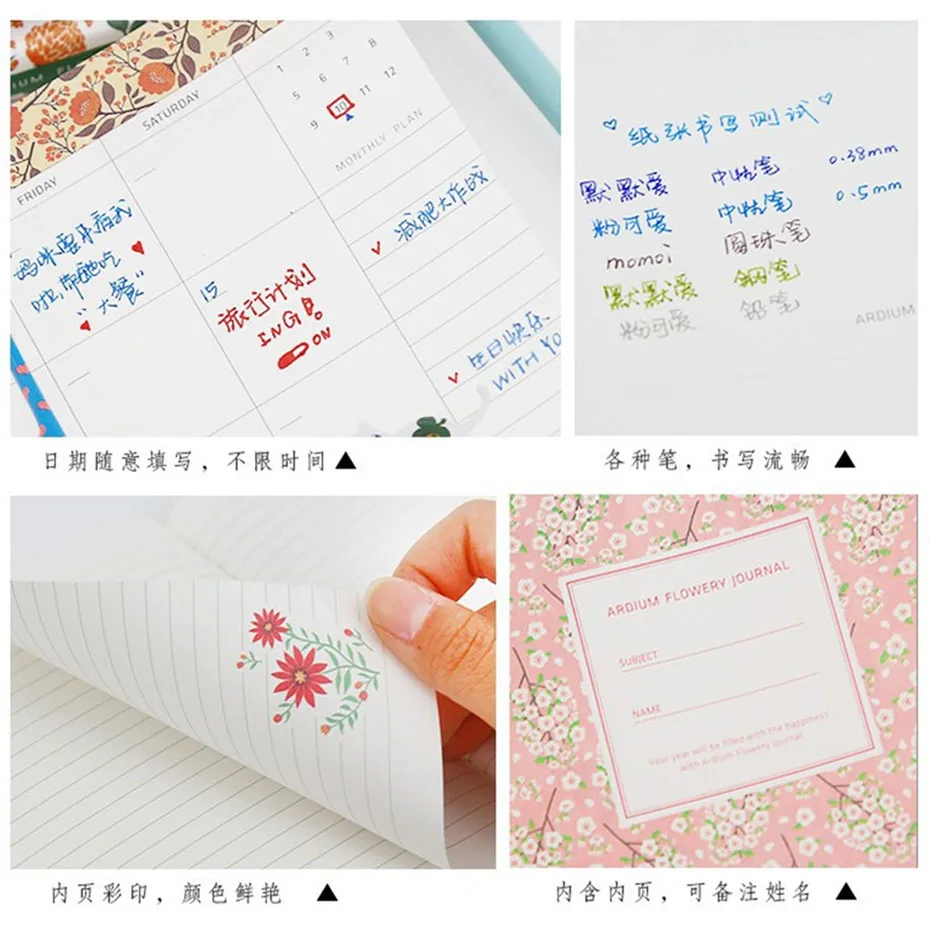 FRIDAY
SATURDAY
1 2 3
5 6 7 8
9 10 11 12
MONTHLY PLAN
妈咪要来看我
啦,带她吃
"大餐"
15
旅行计划
ING!
ON
减肥大作战
生日快乐
WITH YO
纸张书写测试
默默爱 中性笔 0.38mm
粉可爱 中性笔 0.5mm
momoi 圆珠笔
默默爱 钢笔
粉可爱 铅笔
ARDIUM
日期随意填写，不限时间▲
各种笔，书写流畅 ▲
ARDIUM FLOWERY JOURNAL
SUBJECT
NAME
Your year will be filled with the happiness
with Ardium Flowery journal.
内页彩印，颜色鲜艳 ▲
内含内页，可备注姓名 ▲